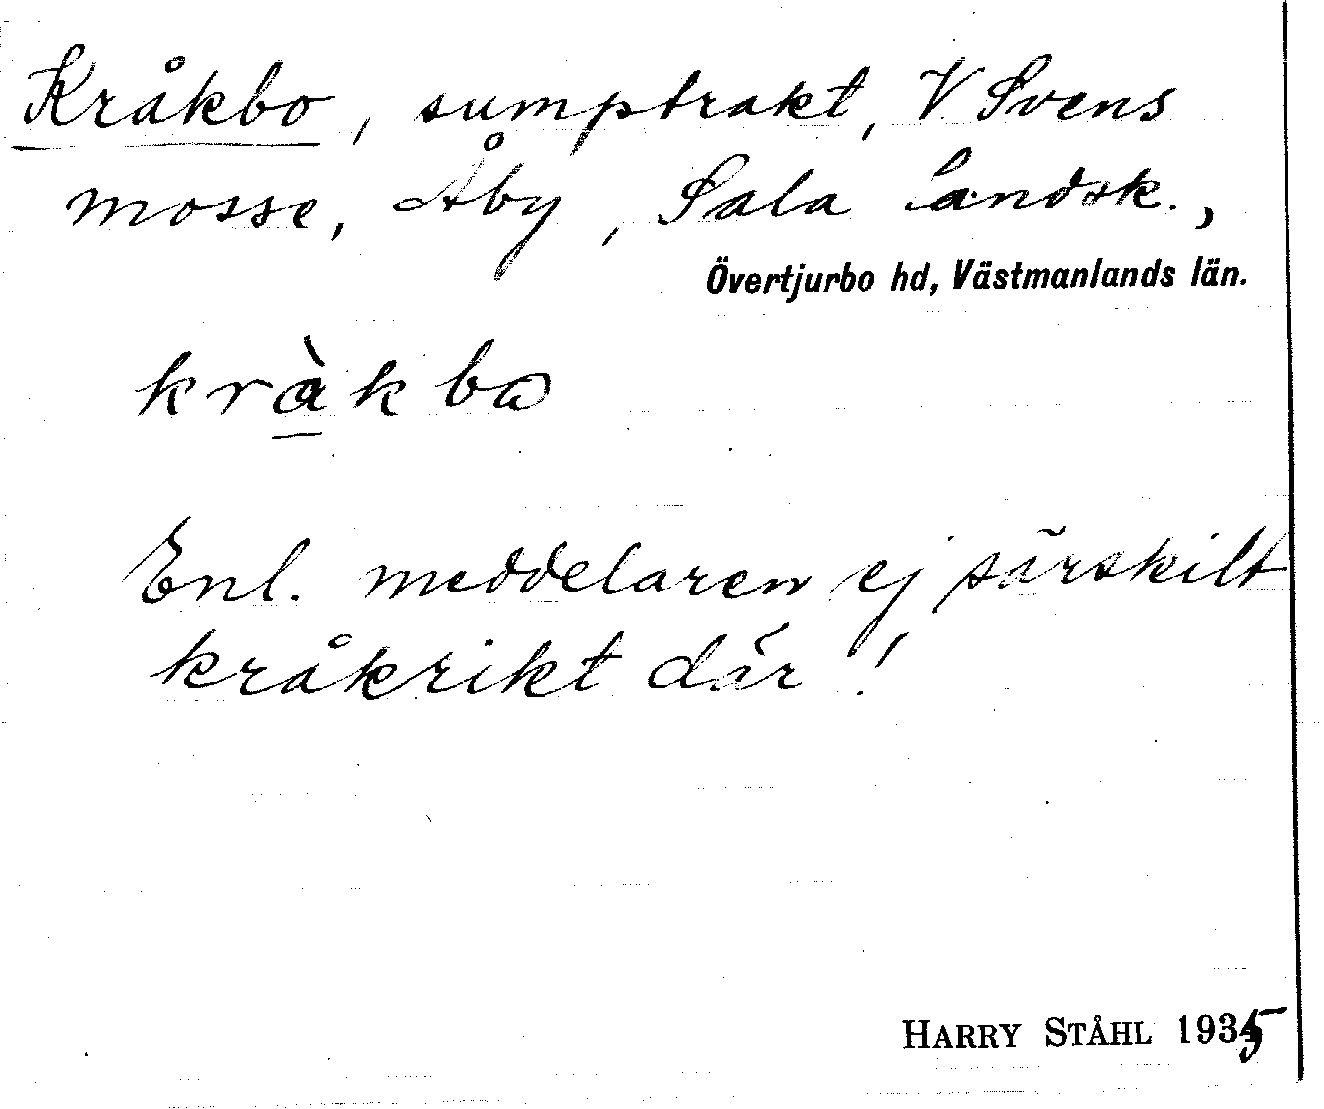 Kråkbo, sumptrakt, V Svens
mosse, Åby, Sala landsk.,
Övertjurbo hd, Västmanlands län.
kràkba
Enl. meddelaren ej särskilt
kråkrikt där!
HARRY STÅHL 1935